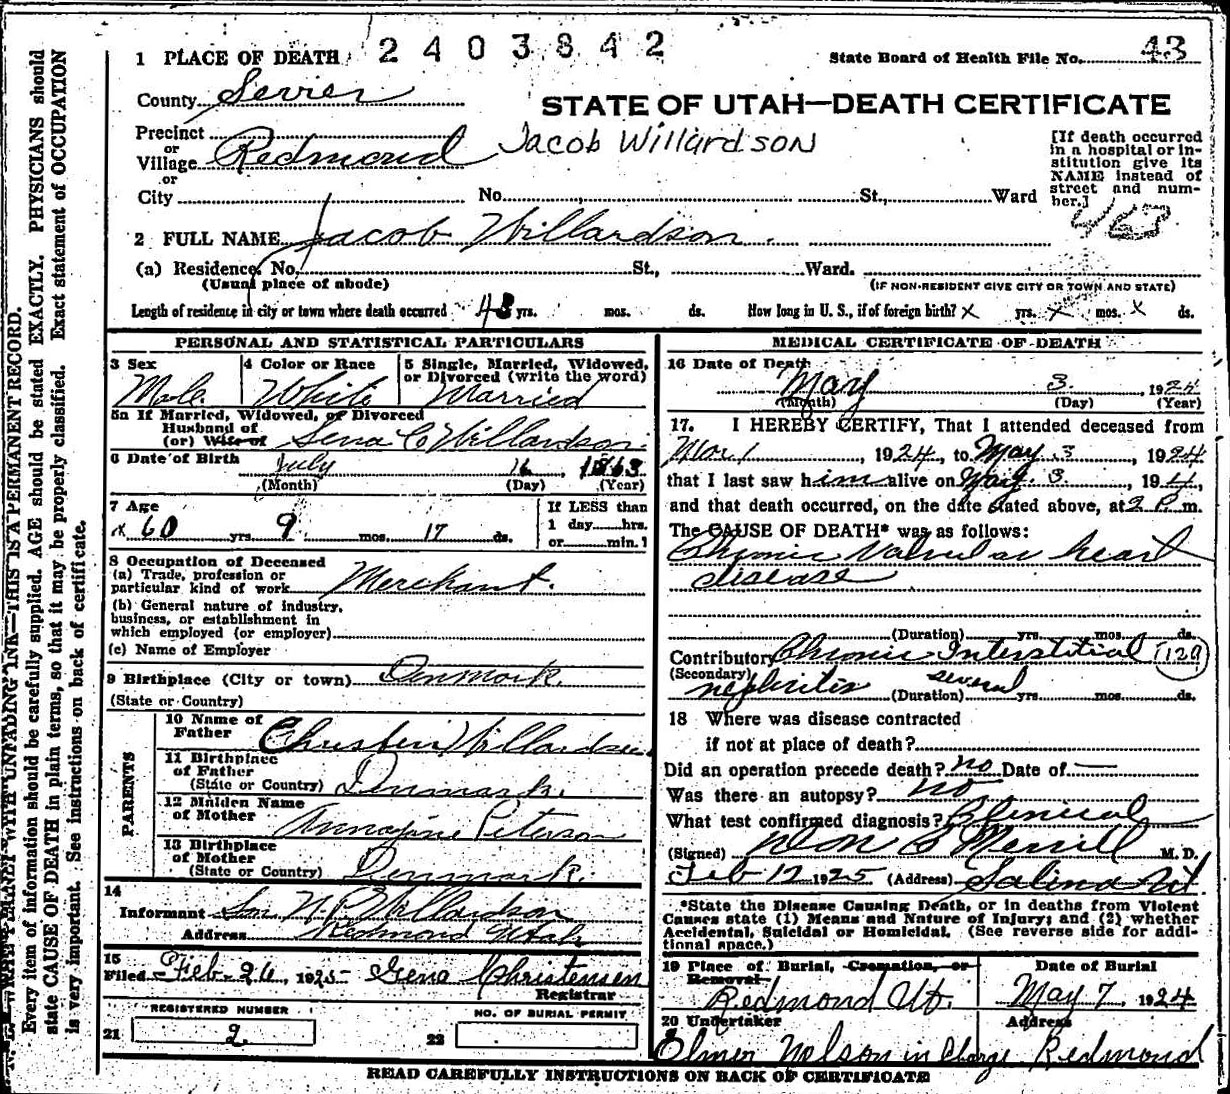 2403842
1 PLACE OF DEATH
State Board of Health File No. 43
County Sevier
STATE OF UTAH—DEATH CERTIFICATE
Precinct
or
Village Redmond
Jacob Willardson
[If death occurred in a hospital or institution give its NAME instead of street and number.]
or
City No. St., Ward
463
2 FULL NAME Jacob Willardson
(a) Residence. No. St., Ward.
(Usual place of abode) (IF NON-RESIDENT GIVE CITY OR TOWN AND STATE)
Length of residence in city or town where death occurred 43 yrs. mos. ds. How long in U. S., if of foreign birth? x yrs. x mos. x ds.
PERSONAL AND STATISTICAL PARTICULARS
3 Sex Male
4 Color or Race White
5 Single, Married, Widowed, or Divorced (write the word) Married
5a If Married, Widowed, or Divorced
Husband of
(or) Wife of Sena C Willardson
6 Date of Birth July 16, 1863
(Month) (Day) (Year)
7 Age
x 60 yrs. 9 mos. 17 ds.
If LESS than
1 day hrs.
or min.?
8 Occupation of Deceased
(a) Trade, profession or
particular kind of work Merchant.
(b) General nature of industry,
business, or establishment in
which employed (or employer)
(c) Name of Employer
9 Birthplace (City or town) Denmark.
(State or Country)
PARENTS
10 Name of
Father Christin Willardsen
11 Birthplace
of Father
(State or Country) Denmark.
12 Maiden Name
of Mother Peterson
13 Birthplace
of Mother
(State or Country) Denmark.
14
Informant Willardson
Address Redmond Utah
15
Filed Feb. 26, 1925 Christensen
Registrar
REGISTERED NUMBER
21 2
NO. OF BURIAL PERMIT
22
MEDICAL CERTIFICATE OF DEATH
16 Date of Death May 3. , 1924
(Month) (Day) (Year)
17. I HEREBY CERTIFY, That I attended deceased from
1, 1924, to May 3, 1924
that I last saw him alive on May 3., 19 4,
and that death occurred, on the date stated above, at 2 P. m.
The CAUSE OF DEATH* was as follows:
Chronic Valvular heart
disease
(Duration) yrs. mos. ds.
Contributory Chronic Interstitial 129
(Secondary)
nephritis (Duration) several yrs. mos. ds.
18 Where was disease contracted
if not at place of death?
Did an operation precede death? no Date of —
Was there an autopsy? no
What test confirmed diagnosis? Clinical
(Signed) Don C Merrill M. D.
Feb 12 1925 (Address) Salina Ut
*State the Disease Causing Death, or in deaths from Violent
Causes state (1) Means and Nature of Injury; and (2) whether
Accidental, Suicidal or Homicidal. (See reverse side for addi-
tional space.)
19 Place of Burial, Cremation, or
Removal
Redmond Ut.
Date of Burial
May 7, 1924
20 Undertaker Address
Elmer Nelson in Charge Redmond
READ CAREFULLY INSTRUCTIONS ON BACK OF CERTIFICATE
N. B.—WRITE PLAINLY WITH UNFADING INK—THIS IS A PERMANENT RECORD.
Every item of information should be carefully supplied. AGE should be stated EXACTLY. PHYSICIANS should
state CAUSE OF DEATH in plain terms, so that it may be properly classified. Exact statement of OCCUPATION
is very important. See instructions on back of certificate.